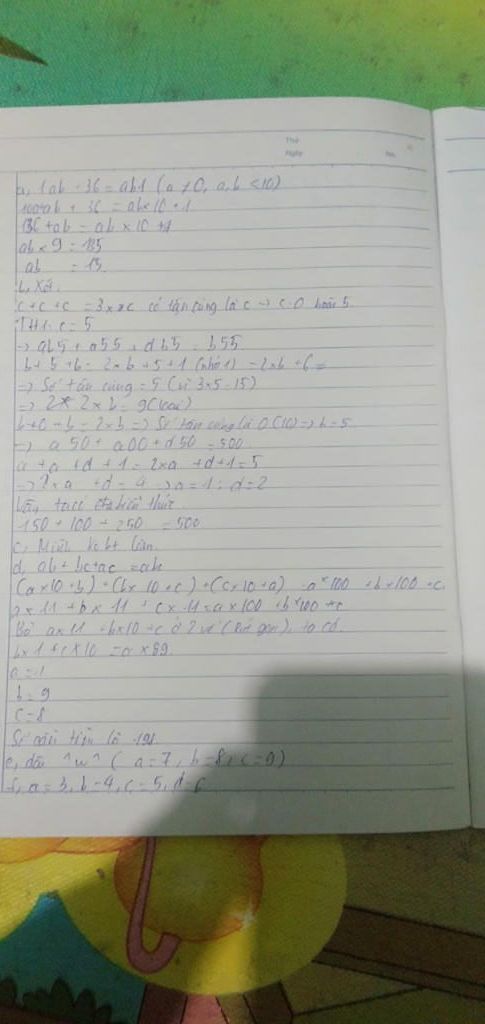 Thứ
Ngày No.
a, 1ab + 36 = ab1 (a ≠ 0, a,b < 10)
100+ab + 36 = ab×10 + 1
136 + ab = ab × 10 + 1
ab × 9 = 135
ab = 15
b, Xét.
c + c + c = 3 × c có tận cùng là c → c = 0 hoặc 5
TH1: c = 5
⇒ ab5 + a55 + db5 = b55
b + 5 + b = 2×b + 5 + 1 (nhớ 1) = 2×b + 6 =
⇒ Số tận cùng = 5 (vì 3×5=15)
⇒ 2 × b = 9 (loại)
b + 0 + b = 2×b ⇒ Số tận cùng là 0 (10) ⇒ b = 5
⇒ a50 + a00 + d50 = 500
a + a + d + 1 = 2×a + d + 1 = 5
⇒ 2×a + d = 4 ⇒ a = 1; d = 2
Vậy ta có thức
150 + 100 + 250 = 500
c, Mình ko bt làm
d, ab + bc + ac = abc
(a×10+b) + (b×10+c) + (c×10+a) = a×100 + b×100 + c
a×11 + b×11 + c×11 = a×100 + b×100 + c
Bỏ a×11 + b×10 + c ở 2 vế (rút gọn), ta có
b×1 + c×10 = a×89
a = 1
b = 9
c = 8
Số cần tìm là 198
e, dễ ^u^ (a = 7, b = 8, c = 9)
f, a = 3, b = 4, c = 5, d = 6